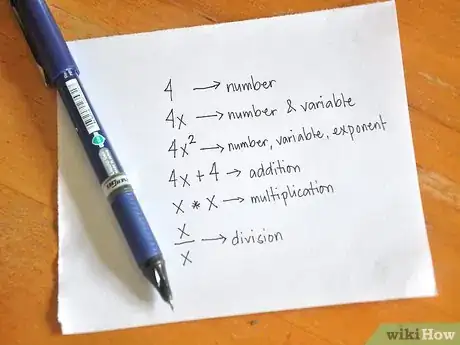 4 → number
4x → number & variable
4x² → number, variable, exponent
4x + 4 → addition
x * x → multiplication
x
x → division
wikiHow